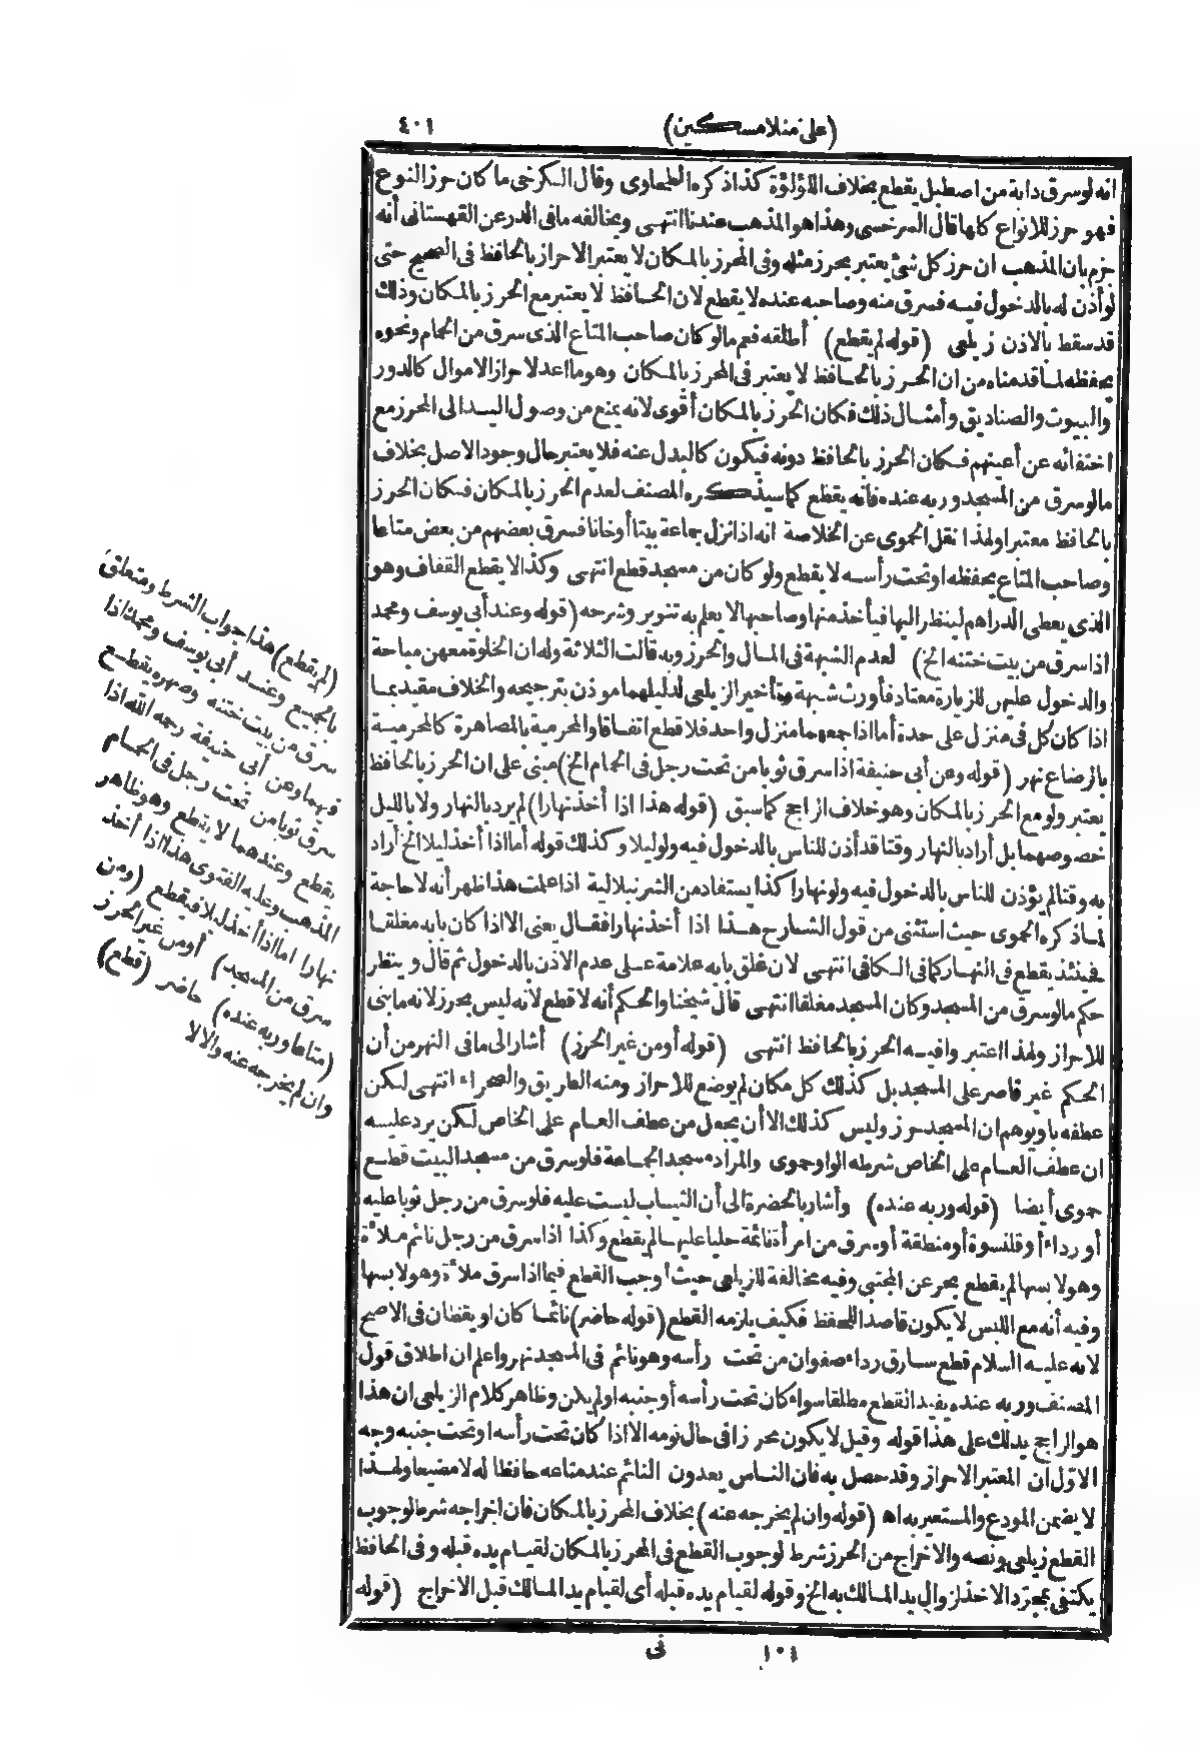 (على منلا مسكين)
٤٠١
انه لو سرق دابة من اصطبل يقطع بخلاف اللؤلؤة كذا ذكره الطحاوى وقال الكرخى ما كان حرز النوع
فهو حرز للانواع كلها قال السرخسى وهذا هو المذهب عندنا انتهى ويخالفه ما فى الدر عن القهستانى أنه
جزم بان المذهب ان حرز كل شئ يعتبر بحرز مثله وفى المحرز بالمكان لا يعتبر الاحراز بالحافظ فى الصحيح حتى
لو أذن له بالدخول فيه فسرق منه وصاحبه عنده لا يقطع لان الحافظ لا يعتبر مع الحرز بالمكان وذلك
قد سقط بالاذن زيلعى (قوله لم يقطع) أطلقه فعم ما لو كان صاحب المتاع الذى سرق من الحمام ونحوه
يحفظه لما قدمناه من ان الحرز بالحافظ لا يعتبر فى المحرز بالمكان وهو ما اعد لاحراز الاموال كالدور
والبيوت والصناديق وأمثال ذلك فكان الحرز بالمكان أقوى لانه يمنع من وصول اليد الى المحرز مع
اختفائه عن أعينهم فكان الحرز بالحافظ دونه فيكون كالبدل عنه فلا يعتبر حال وجود الاصل بخلاف
ما لو سرق من المسجد وربه عنده فانه يقطع كما سيذكره المصنف لعدم الحرز بالمكان فكان الحرز
بالحافظ معتبرا ولهذا نقل الحموى عن الخلاصة انه اذا نزل جماعة بيتا أو خانا فسرق بعضهم من بعض متاعا
وصاحب المتاع يحفظه او تحت رأسه لا يقطع ولو كان من مسجد قطع انتهى وكذا لا يقطع القفاف وهو
الذى يعطى الدراهم لينظر اليها فيأخذ منها وصاحبها لا يعلم به تنوير وشرحه (قوله وعند أبى يوسف ومحمد
اذا سرق من بيت ختنه الخ) لعدم الشبهة فى المال والحرز وبه قالت الثلاثة وله ان الخلوة معهن مباحة
والدخول عليهن للزيارة معتاد فأورث شبهة وتأخير الزيلعى لدليلهما موذن بترجيحه والخلاف مقيد بما
اذا كان كل فى منزل على حدة أما اذا جمعهما منزل واحد فلا قطع اتفاقا والمحرمية بالمصاهرة كالمحرمية
بالرضاع نهر (قوله وعن أبى حنيفة اذا سرق ثوبا من تحت رجل فى الحمام الخ) مبنى على ان الحرز بالحافظ
يعتبر ولو مع الحرز بالمكان وهو خلاف الراجح كما سبق (قوله هذا اذا أخذ نهارا) لم يرد بالنهار ولا بالليل
خصوصهما بل أراد بالنهار وقتا قد أذن للناس بالدخول فيه ولو ليلا وكذلك قوله أما اذا أخذ ليلا الخ أراد
به وقتا لم يؤذن للناس بالدخول فيه ولو نهارا كذا يستفاد من الشرنبلالية اذا علمت هذا ظهر أنه لا حاجة
لما ذكره الحموى حيث استثنى من قول الشارح هذا اذا أخذ نهارا فقال يعنى الا اذا كان بابه مغلقا
فحينئذ يقطع فى النهار كما فى الكافى انتهى لان غلق بابه علامة على عدم الاذن بالدخول ثم قال وينظر
حكم ما لو سرق من المسجد وكان المسجد مغلقا انتهى قال شيخنا والحكم أنه لا قطع لانه ليس بحرز لانه ما بنى
للاحراز ولهذا اعتبروا فيه الحرز بالحافظ انتهى (قوله أو من غير الحرز) أشار الى ما فى النهر من أن
الحكم غير قاصر على المسجد بل كذلك كل مكان لم يوضع للاحراز ومنه الطريق والصحراء انتهى لكن
عطفه باو يوهم ان المسجد حرز وليس كذلك الا أن يجعل من عطف العام على الخاص لكن يرد عليه
ان عطف العام على الخاص شرطه الواو حموى والمراد مسجد الجماعة فلو سرق من مسجد البيت قطع
حموى أيضا (قوله وربه عنده) وأشار بالحضرة الى أن الثياب ليست عليه فلو سرق من رجل ثوبا عليه
أو رداء أو قلنسوة أو منطقة أو سرق من امرأة نائمة حليا عليها لم يقطع وكذا اذا سرق من رجل نائم ملاءة
وهو لابسها لم يقطع بحر عن المجتبى وفيه مخالفة للزيلعى حيث أوجب القطع فيما اذا سرق ملاءة وهو لابسها
وفيه أنه مع اللبس لا يكون قاصدا للحفظ فكيف يلزمه القطع (قوله حاضر) نائما كان او يقظان فى الاصح
لانه عليه السلام قطع سارق رداء صفوان من تحت رأسه وهو نائم فى المسجد نهر واعلم ان اطلاق قول
المصنف وربه عنده يفيد القطع مطلقا سواء كان تحت رأسه أو جنبه او لم يكن وظاهر كلام الزيلعى ان هذا
هو الراجح يدلك على هذا قوله وقيل لا يكون محرزا فى حال نومه الا اذا كان تحت رأسه او تحت جنبه وجه
الاوّل ان المعتبر الاحراز وقد حصل به فان الناس يعدون النائم عند متاعه حافظا له لا مضيعا ولهذا
لا يضمن المودع والمستعير به اه (قوله وان لم يخرجه عنه) بخلاف المحرز بالمكان فان اخراجه شرط لوجوب
القطع زيلعى ونصه والاخراج من الحرز شرط لوجوب القطع فى المحرز بالمكان لقيام يده قبله وفى الحافظ
يكتفى بمجرّد الاخذ لزوال يد المالك به الخ وقوله لقيام يده قبله أى لقيام يد المالك قبل الاخراج (قوله
(لم يقطع) هذا جواب الشرط ومتعلق
بالجميع وعند أبى يوسف ومحمد اذا
سرق من بيت ختنه وصهره يقطع
فيهما وعن أبى حنيفة رحمه الله اذا
سرق ثوبا من تحت رجل فى الحمام
يقطع وعندهما لا يقطع وهو ظاهر
المذهب وعليه الفتوى هذا اذا أخذ
نهارا اما اذا أخذ ليلا فيقطع (ومن
سرق من المسجد) أو من غير الحرز
(متاعا وربه عنده) حاضر (قطع)
وان لم يخرجه عنه والا لا
١٠١
فى